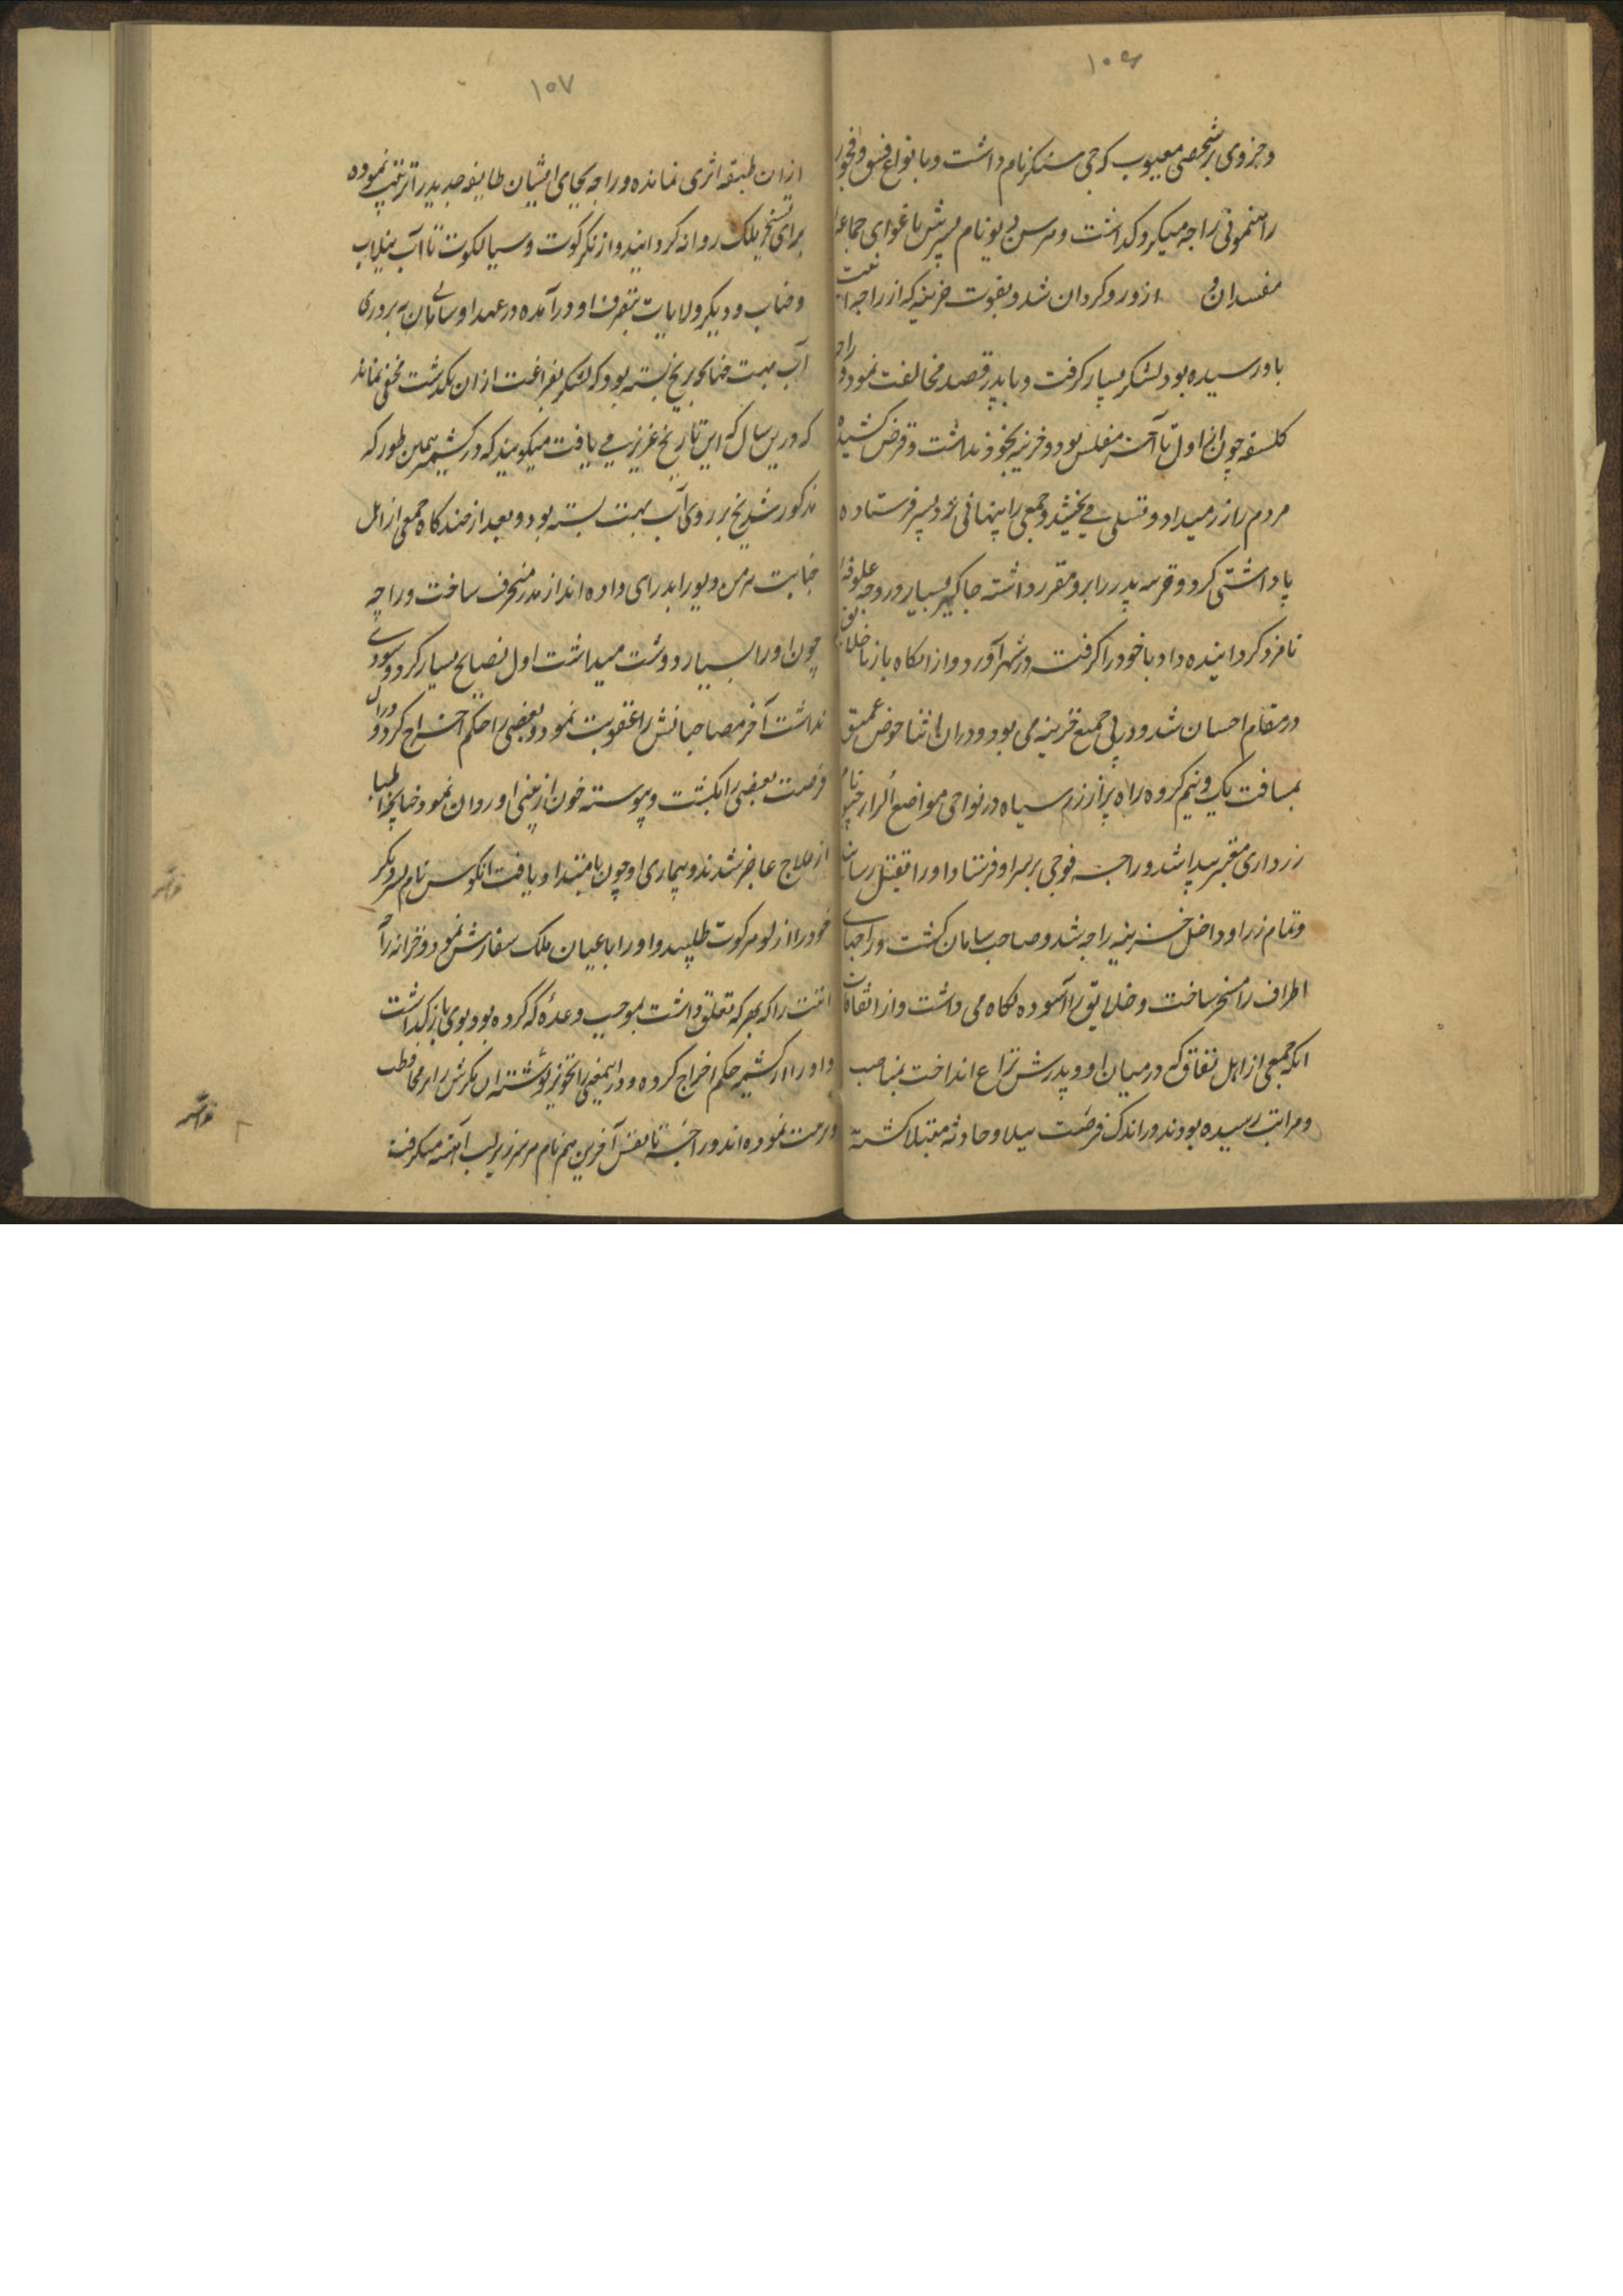 ۱۰۶
وجزوی بر شخصی معیوب که جی سنکر نام داشت و با نواع فسق و فجور
راهنمونی راجه میکرد کذاشت و هرسن دیو نام پسرش باغوای جماعه
مفسدان از و روکردان شد و بقوت خزینه که از راجه
باو رسیده بود لشکر بسیار کرفت و با پدر قصد مخالفت نمود و راجه
کلسفه چون از اول تا آخر مفلس بود و خزینه بخود نداشت و قرض کشیده
مردم را زر میداد و تسلی می بخشید و جمعی را پنهانی نزد پسر فرستاده
با و اشتی کرد و قرضه پدر را برو مقرر داشته جاکیر بسیار در وجه علوفه
نامزد کردانیده داد با خود را کرفت در شهر آورد و از انکاه باز با خلایق
در مقام احسان شد و در پی جمیع خزینه می بود و دران اثنا حوض عمیق
بمسافت یک و نیم کروه راه پر از زر سیاه در نواحی مواضع الرار جیو نام
زرداری معتبر پیدا شد و راجه فوجی بر سر او فرستاد و او را بقتل رساند
و تمام زر او داخل خزینه راجه شد و صاحب سامان کشت و راجهای
اطراف را مسخر ساخت و خلایق را آسوده نکاه می داشت و از اتفاقات
انکه جمعی از اهل نفاق که در میان او و پدرش نزاع انداخت بمناصب
و مراتب رسیده بودند در اندک فرصت ببلا و حادثه مبتلا کشته
۱۰۷
ازان طبقه اثری نمانده و راجه بجای ایشان طایفه جدید را ترتیب نموده
برای تسخیر ملک روانه کردانید و از نکرکوت و سیالکوت تا آب نیلاب
و خناب و دیکر ولایات بتصرف او درآمده در عهد او سامان به بروری
آب بهت خنای یخ بسته بود که لشکر بفراغت ازان بکذشت مخفی نماند
که درین سال که این تاریخ عزیز می یافت میکویند که در کشمیر همین طور که
مذکور شد یخ بر روی آب بهت بسته بود و بعد از چند کاه جمعی از اهل
خباثت هرسن دیو را بد رای داده اند از پدر منحرف ساخت و راجه
چون او را بسیار دوست میداشت اول نصایح بسیار کرد و سودی
نداشت آخر مصاحبانش را عقوبت نمود و بعضی را حکم اخراج کرد و دران
فرصت بعضی را بکشت و پیوسته خون از بینی او روان نمود چنانچه اطبا
از علاج عاجز شدند و بیماری او چون بامتداد یافت انکرس نام پسر دیکر
خود را از لوهرکوت طلبید و او را باعیان ملک سفارش نمود و خزانه را
تعلق داشت بموجب وعده که کرده بود بوی باز کذاشت
و او را از کشمیر حکم اخراج کرده و در اینمعنی
نموده اند و راجه تا نفس آخرین هم نام هرسن زیر لب آهسته میکرفت